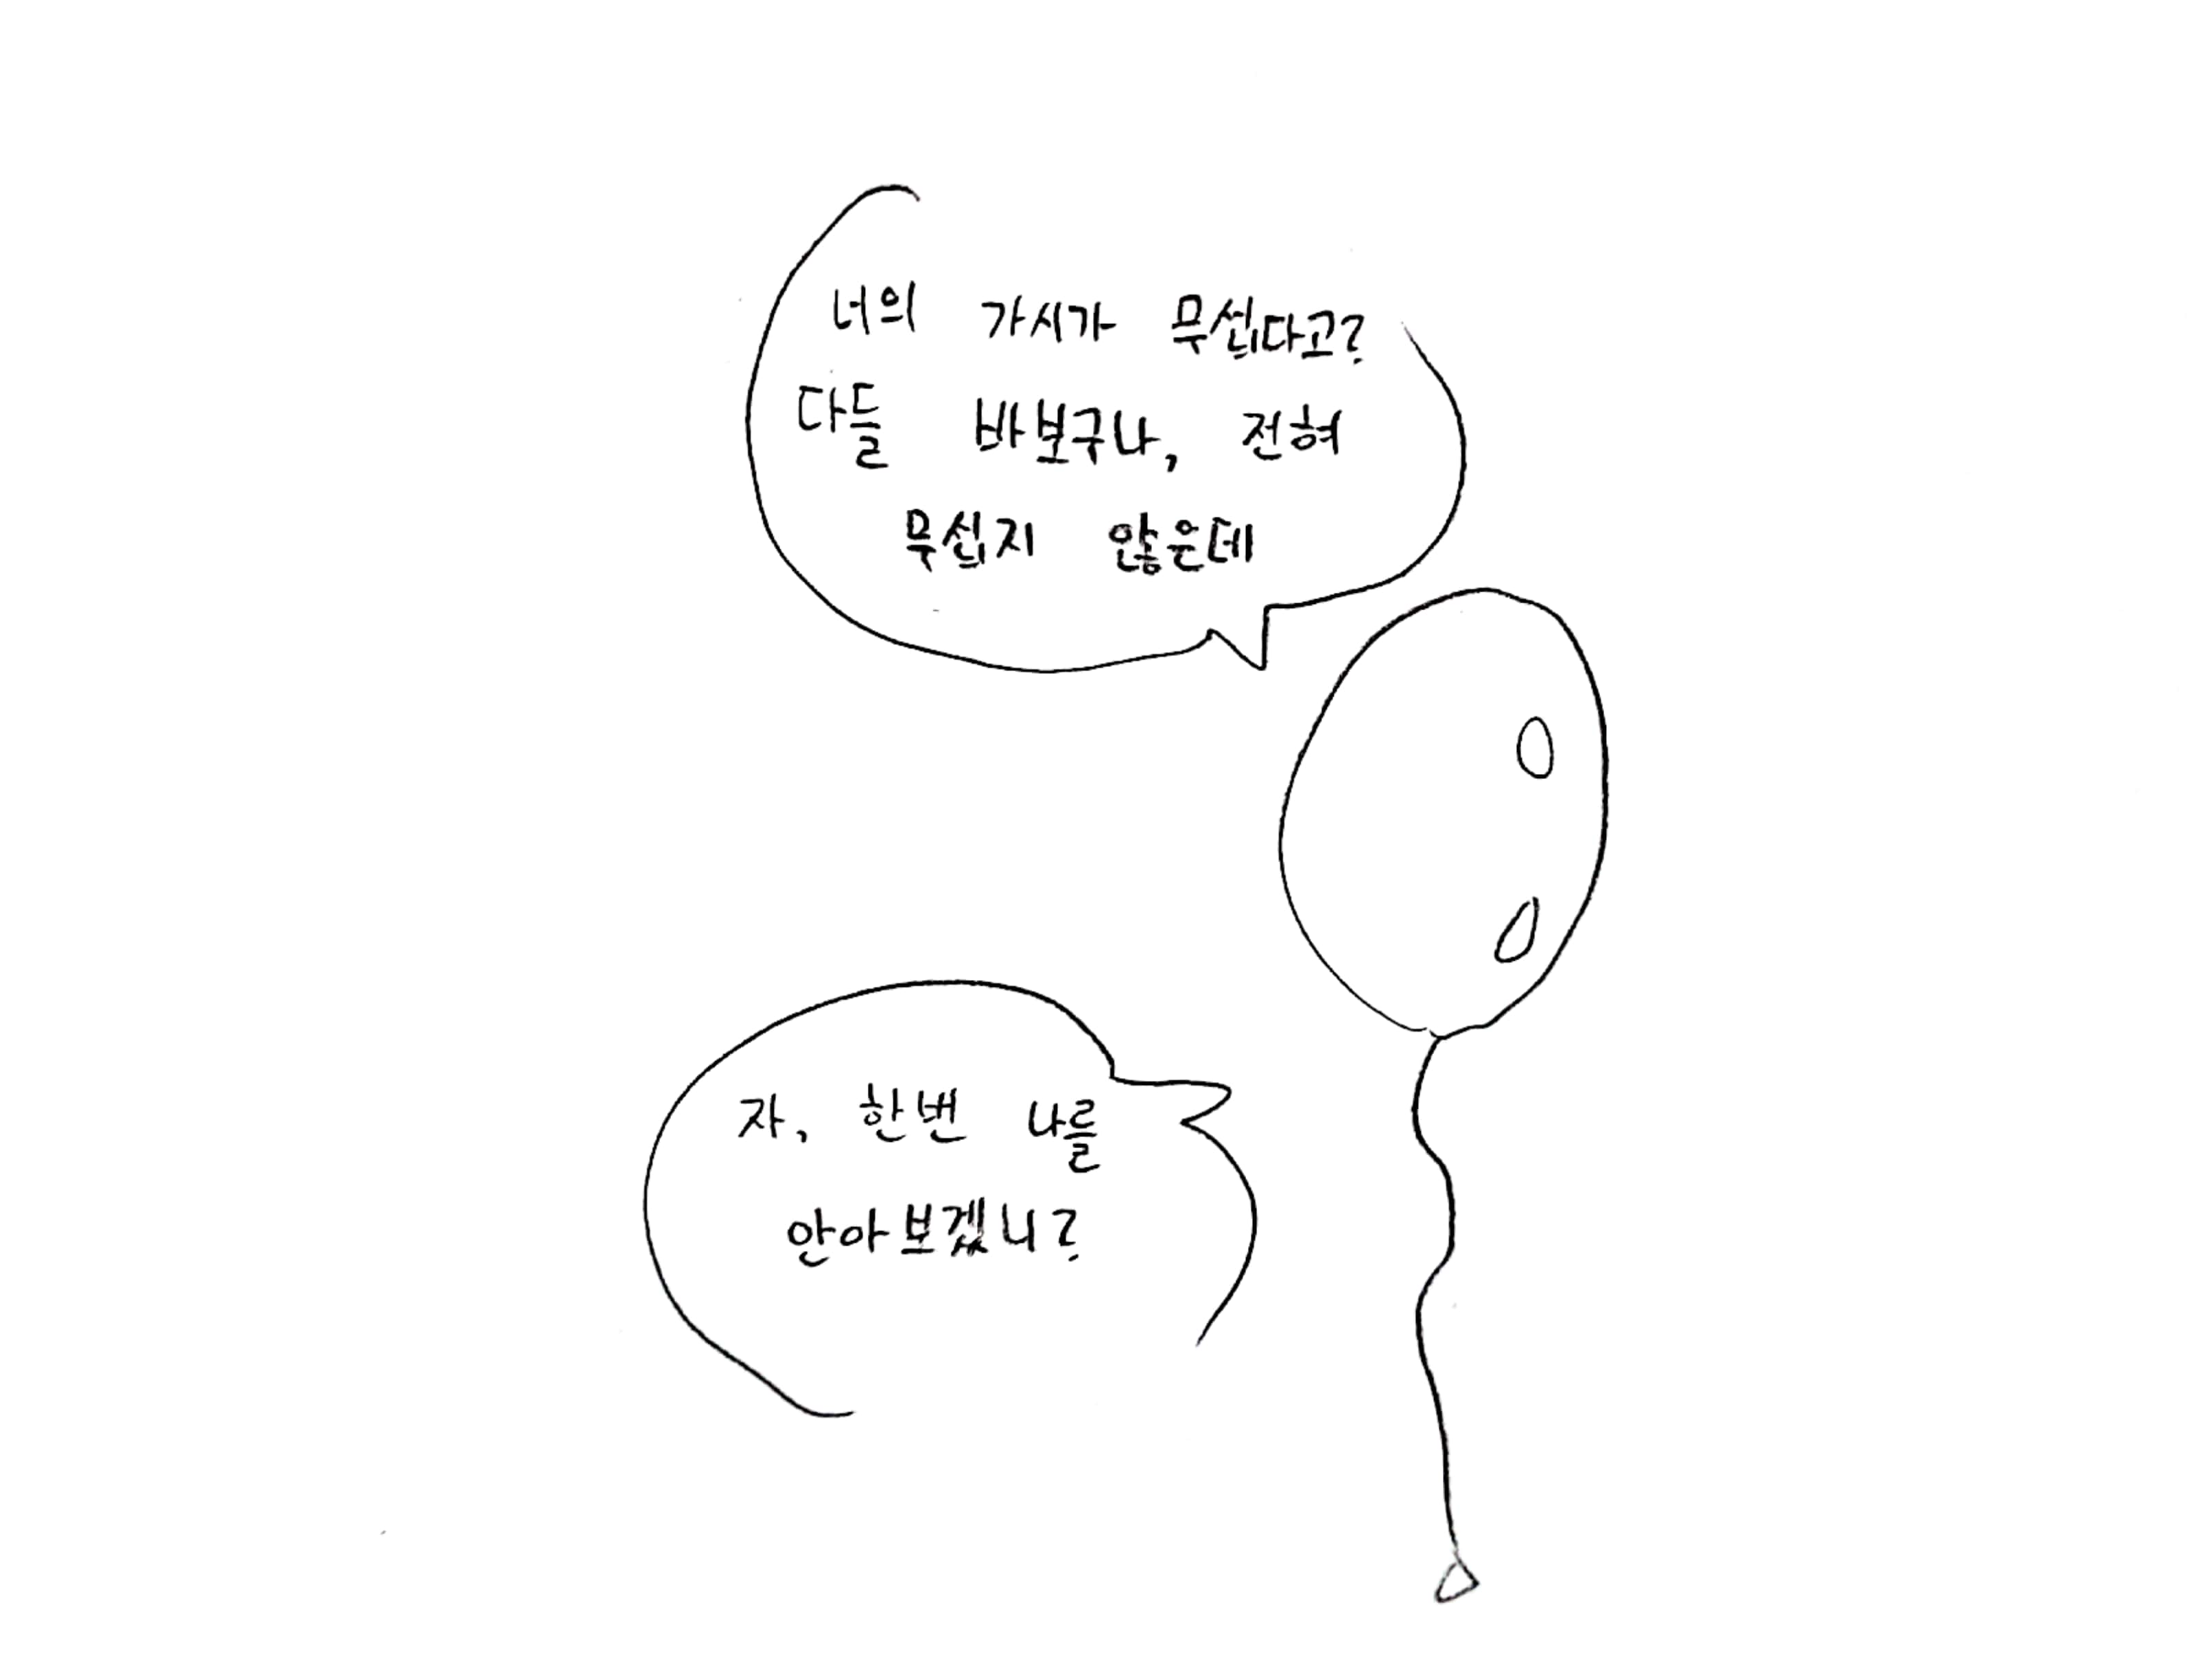 너의 가시가 무섭다고?
다들 바보구나, 전혀
무섭지 않은데
자, 한번 나를
안아보겠니?